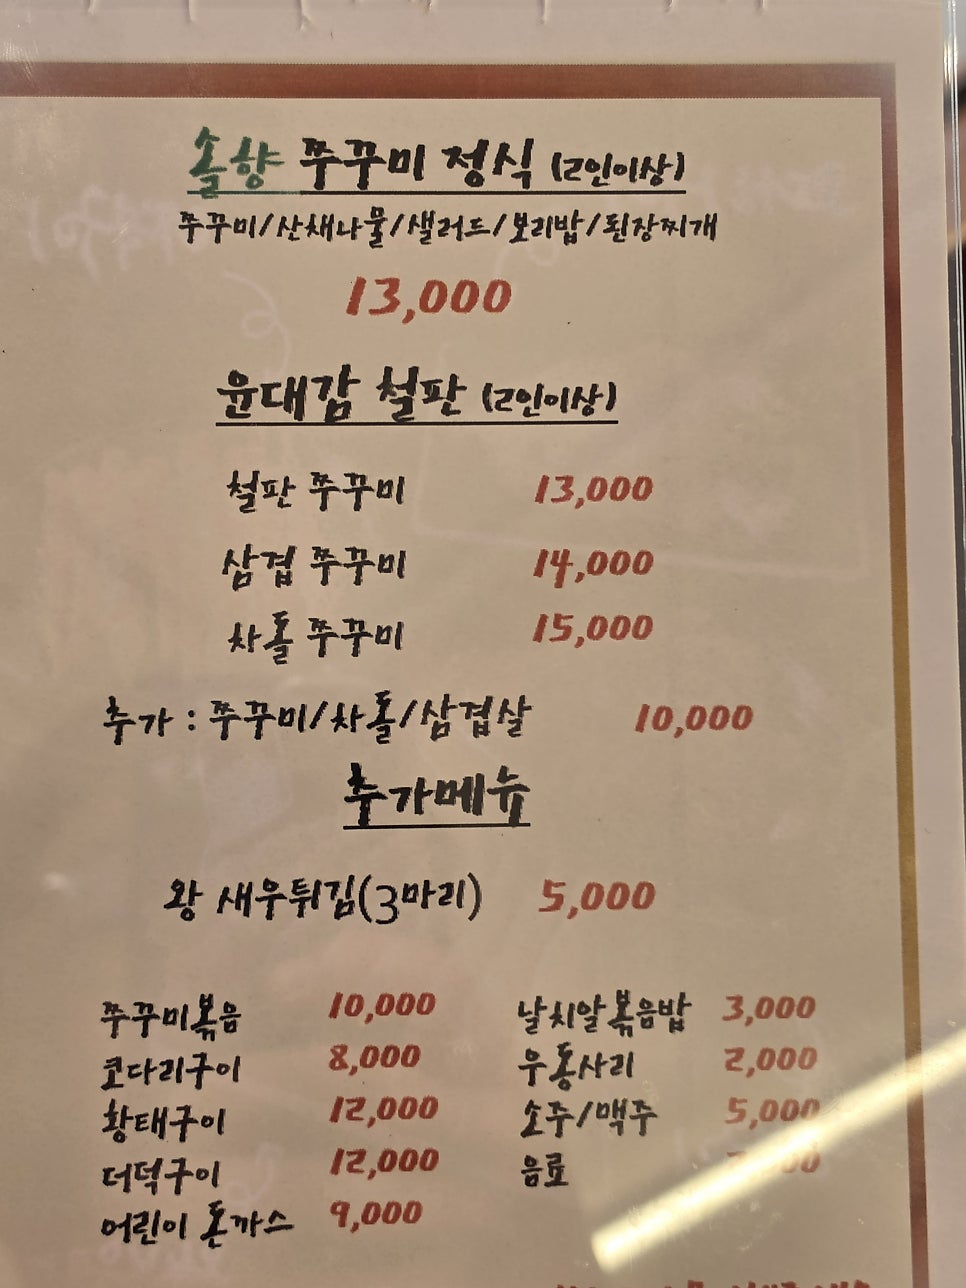 솔향 쭈꾸미 정식 (2인이상)
쭈꾸미/산채나물/샐러드/보리밥/된장찌개
13,000
윤대감 철판 (2인이상)
철판 쭈꾸미 13,000
삼겹 쭈꾸미 14,000
차돌 쭈꾸미 15,000
추가 : 쭈꾸미/차돌/삼겹살 10,000
추가메뉴
왕 새우튀김(3마리) 5,000
쭈꾸미볶음 10,000 날치알볶음밥 3,000
코다리구이 8,000 우동사리 2,000
황태구이 12,000 소주/맥주 5,000
더덕구이 12,000 음료
어린이 돈까스 9,000